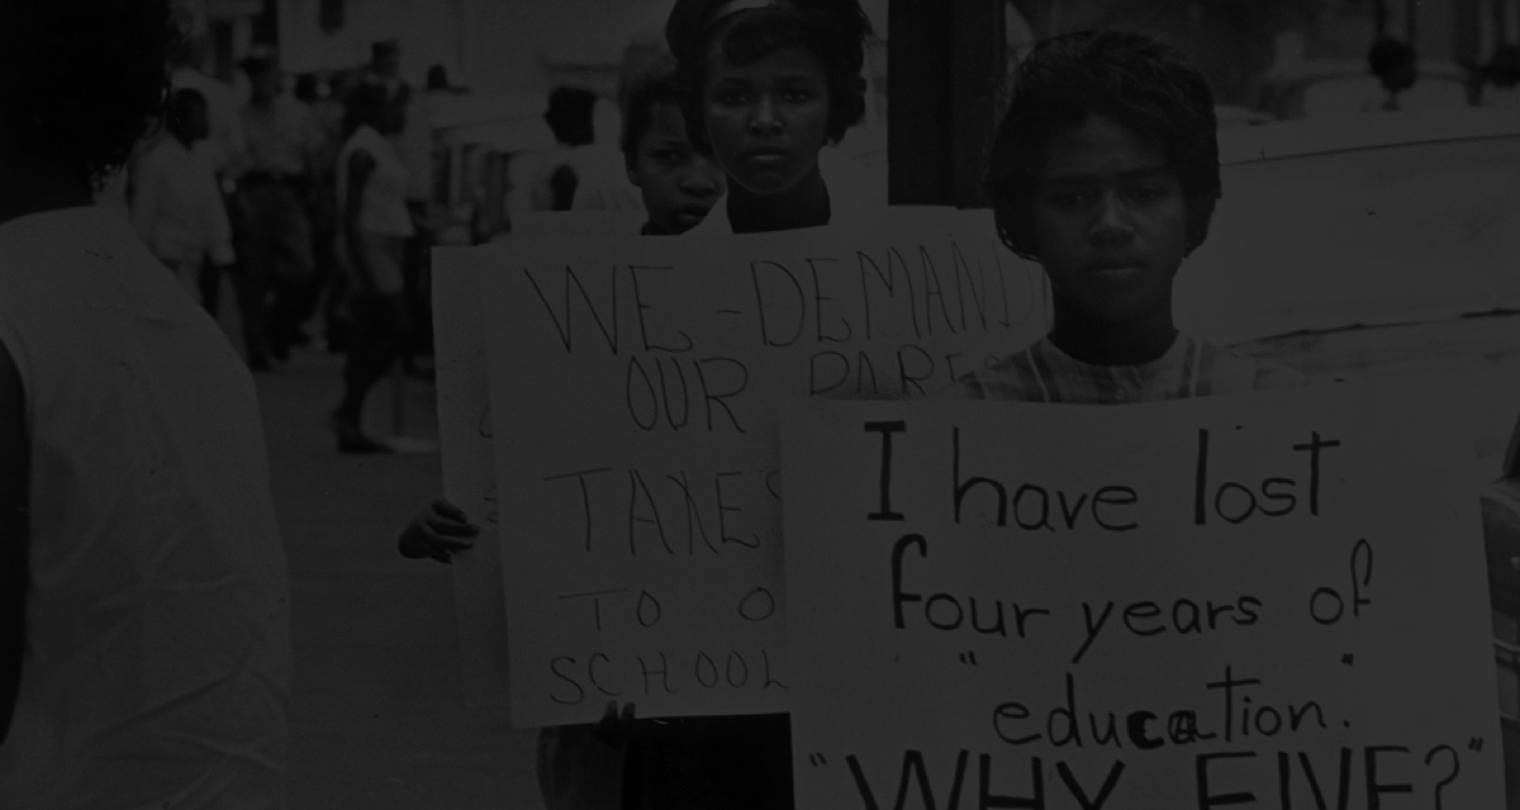 WE-DEMAND
OUR
TAXES
TO
SCHOOL
I have lost
four years of
"education."
"WHY FIVE?"